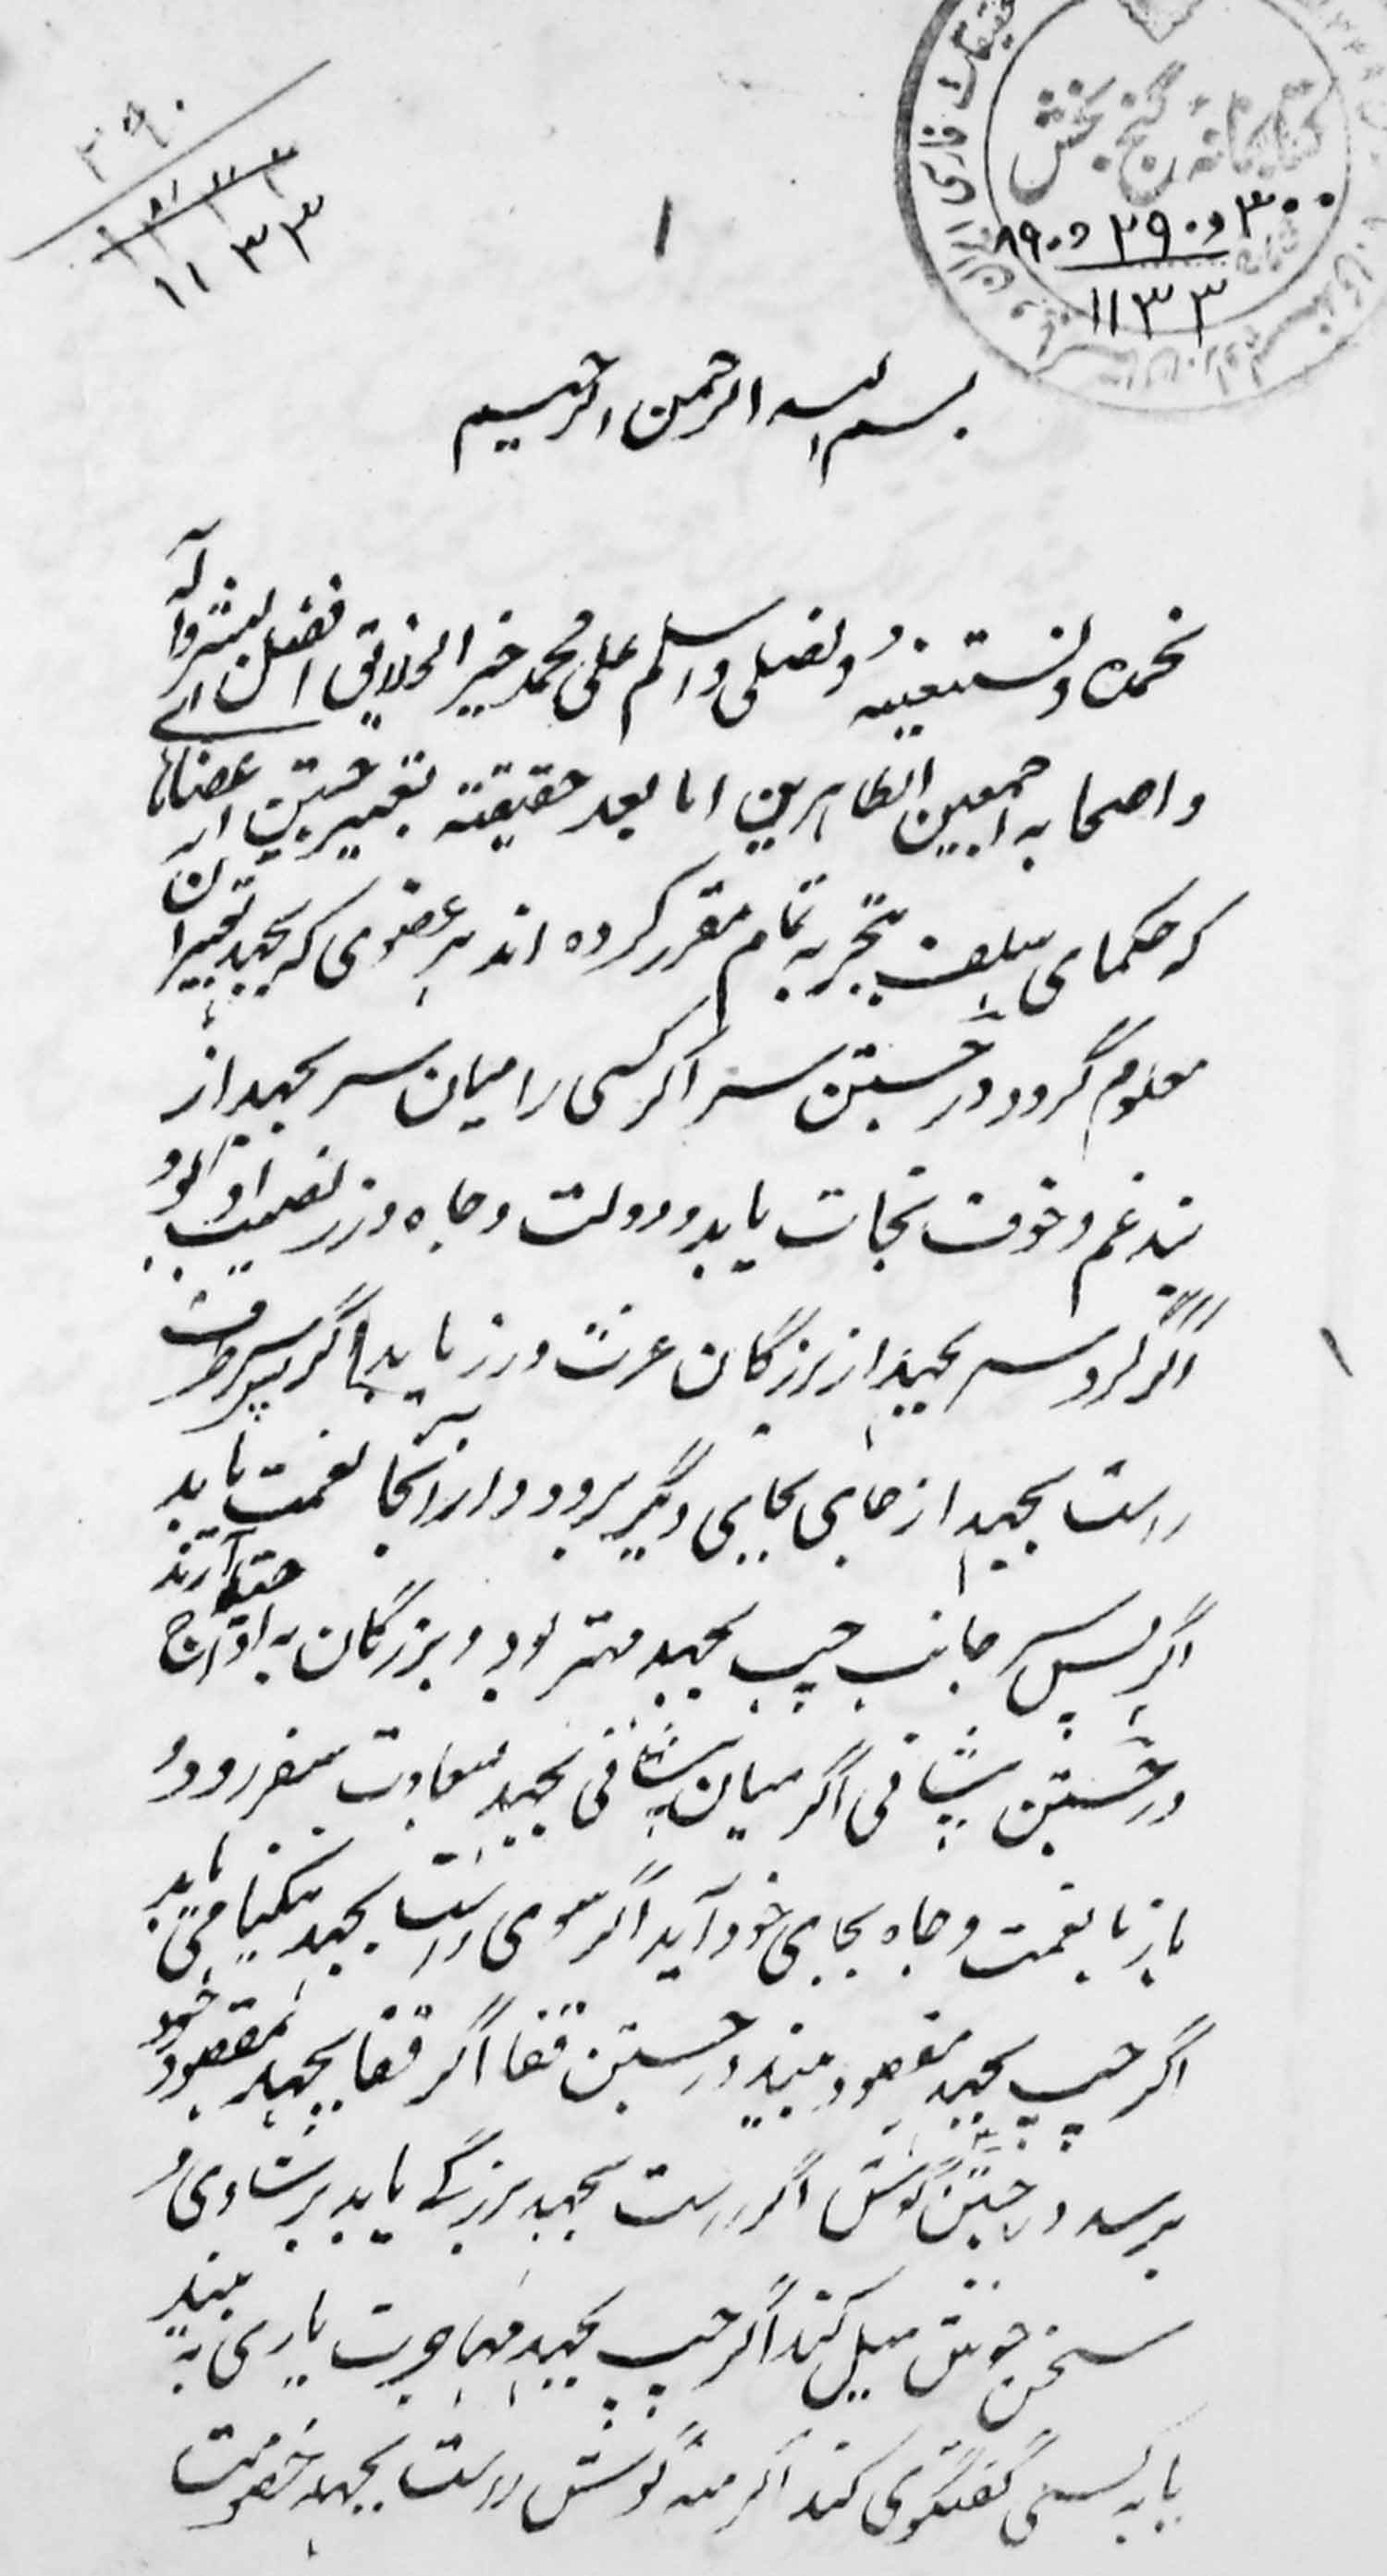 ۳۹۰
۱۱۳۳
۱
کتابخانه گنج بخش
۳۰۰ و ۲۹۰ و ۸۹۰
۱۱۳۳
بسم الله الرحمن الرحیم
نحمده و نستعینه و نصلی و اسلم علی محمد خیر الخلایق افضل البشر و آله
و اصحابه اجمعین الطاهرین اما بعد حقیقته تعبیر جستن اعضاها
که حکمای سلف بتجربه تمام مقرر کرده اند هر عضوی که بجهد تعبیر آن
معلوم گردد در جستن سر اگر کسی را میان سر بجهد از
بند غم و خوف نجات یابد و دولت و جاه و زر نصیب او بود
اگر گرد سر بجهد از بزرگان عزت و زر یابد اگر پس سر طرف
راست بجهد از جای بجایی دیگر برود و از آنجا نعمت یابد
اگر پس سر جانب چپ بجهد مهتر بود و بزرگان به او آرند
در جستن پیشانی اگر میان پیشانی بجهد بسعادت سفر رود و
باز با نعمت و جاه بجای خود آید اگر سوی راست بجهد نیکنامی یابد
اگر چپ بجهد مقصود بیند در جستن قفا اگر قفا بجهد بمقصود خود
برسد در جستن گوش اگر راست بجهد بزرگی یابد بر شادی و
سخن خوش میل کند اگر چپ بجهد یاری به بیند
یا به کسی گفتگوی کند اگر گوش راست بجهد خصومت